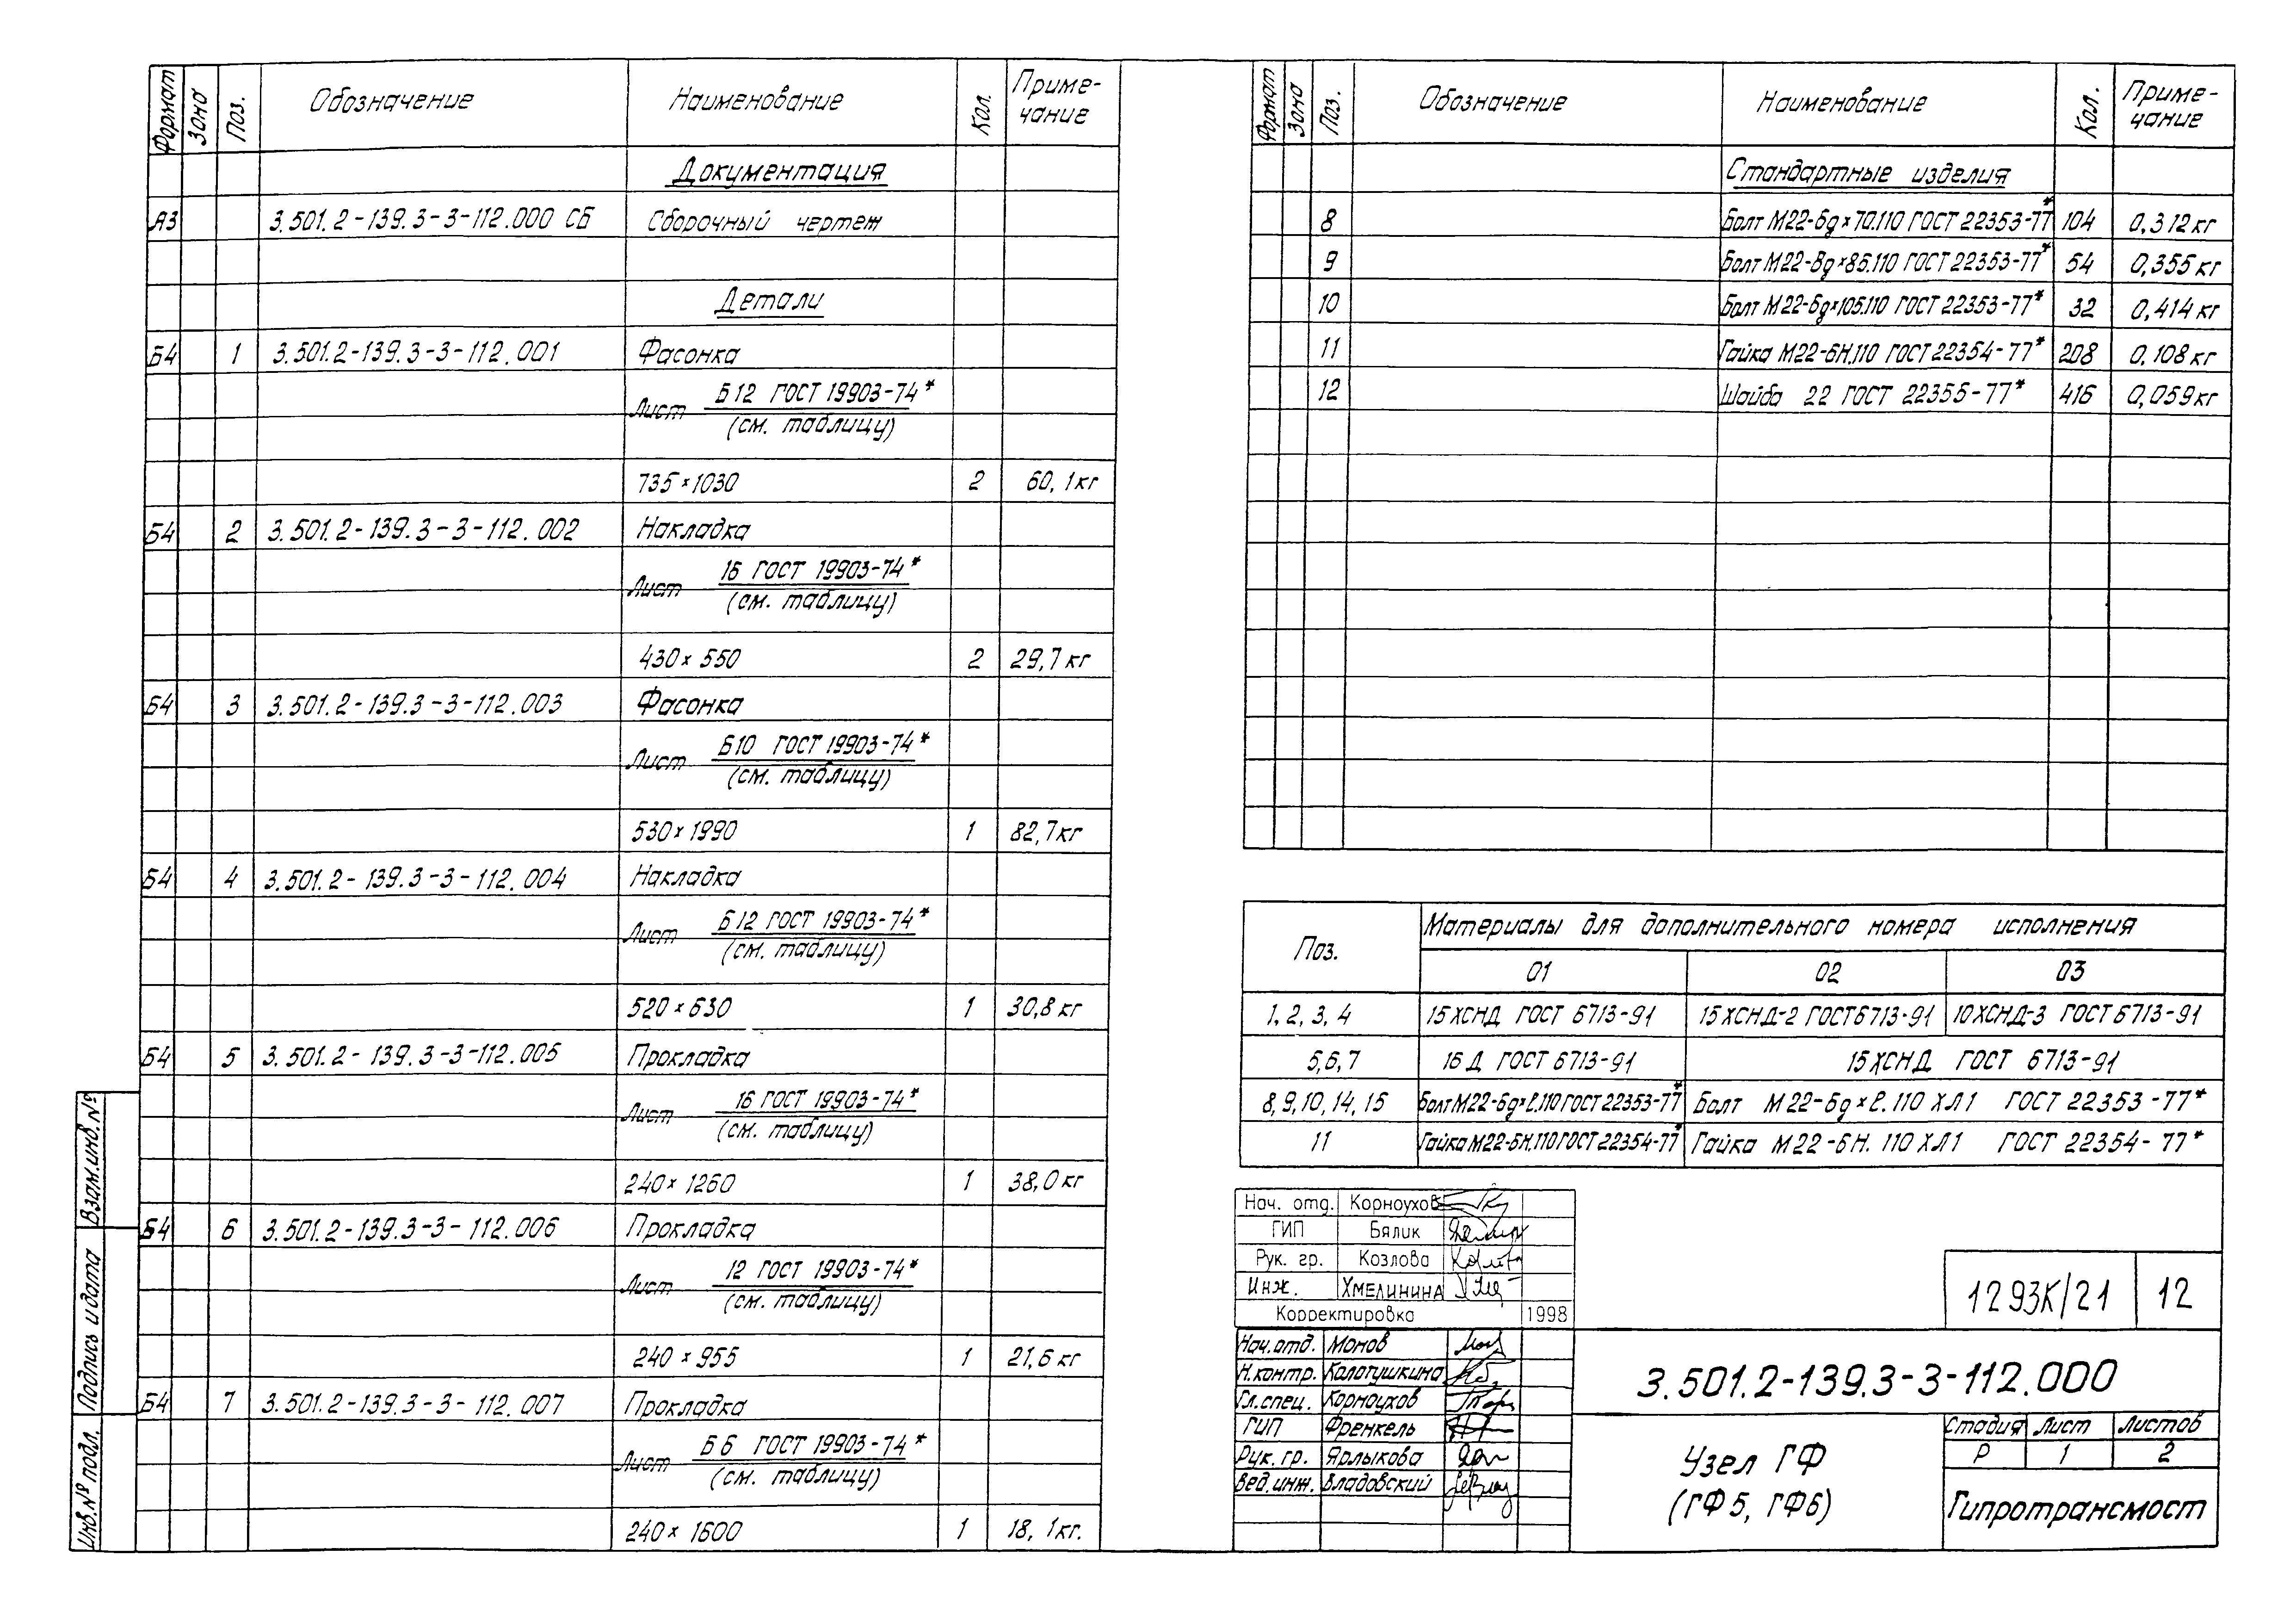 Формат Зона Поз. Обозначение Наименование Кол. Приме-
чание
Документация
А3 3.501.2-139.3-3-112.000 СБ Сборочный чертеж
Детали
Б4 1 3.501.2-139.3-3-112.001 Фасонка
Лист Б12 ГОСТ 19903-74*
(см. таблицу)
735×1030 2 60,1кг
Б4 2 3.501.2-139.3-3-112.002 Накладка
Лист 16 ГОСТ 19903-74*
(см. таблицу)
430×550 2 29,7кг
Б4 3 3.501.2-139.3-3-112.003 Фасонка
Лист Б10 ГОСТ 19903-74*
(см. таблицу)
530×1990 1 82,7кг
Б4 4 3.501.2-139.3-3-112.004 Накладка
Лист Б12 ГОСТ 19903-74*
(см. таблицу)
520×630 1 30,8кг
Б4 5 3.501.2-139.3-3-112.005 Прокладка
Лист 16 ГОСТ 19903-74*
(см. таблицу)
240×1260 1 38,0кг
Б4 6 3.501.2-139.3-3-112.006 Прокладка
Лист 12 ГОСТ 19903-74*
(см. таблицу)
240×955 1 21,6кг
Б4 7 3.501.2-139.3-3-112.007 Прокладка
Лист Б6 ГОСТ 19903-74*
(см. таблицу)
240×1600 1 18,1кг.
Взам.инв.№
Подпись и дата
Инв.№ подл.
Формат Зона Поз. Обозначение Наименование Кол. Приме-
чание
Стандартные изделия
8 Болт М22-6g×70.110 ГОСТ 22353-77* 104 0,312кг
9 Болт М22-8g×85.110 ГОСТ 22353-77* 54 0,355кг
10 Болт М22-6g×105.110 ГОСТ 22353-77* 32 0,414кг
11 Гайка М22-6Н.110 ГОСТ 22354-77* 208 0,108кг
12 Шайба 22 ГОСТ 22355-77* 416 0,059кг
Поз. Материалы для дополнительного номера исполнения
01 02 03
1, 2, 3, 4 15ХСНД ГОСТ 6713-91 15ХСНД-2 ГОСТ 6713-91 10ХСНД-3 ГОСТ 6713-91
5,6,7 16Д ГОСТ 6713-91 15ХСНД ГОСТ 6713-91
8, 9, 10, 14, 15 Болт М22-6g×ℓ.110 ГОСТ 22353-77* Болт М22-6g×ℓ.110 ХЛ1 ГОСТ 22353-77*
11 Гайка М22-6Н.110 ГОСТ 22354-77* Гайка М22-6Н.110 ХЛ1 ГОСТ 22354-77*
Нач. отд. Корноухов
ГИП Бялик
Рук. гр. Козлова
Инж. Хмелинина
Корректировка 1998
1293К/21 12
Нач.отд. Монов
Н.контр. Колотушкина
Гл.спец. Корноухов
ГИП Френкель
Рук.гр. Ярлыкова
Вед.инж. Владовский
3.501.2-139.3-3-112.000
Узел ГФ
(ГФ5, ГФ6)
Стадия Лист Листов
Р 1 2
Гипротрансмост